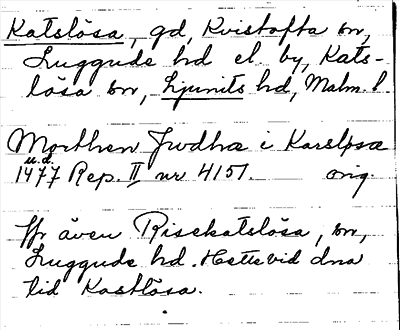 Katslösa, gd, Kvistofta sn,
Luggude hd el. by, Kats-
lösa sn, Ljunits hd, Malm. l.
Morthen Jwdhæ i Karsløsæ
u.d.
1477 Rep. II nr 4151. orig.
Jfr även Risekatslösa, sn,
Luggude hd. Hette vid dna
tid Kastlösa.